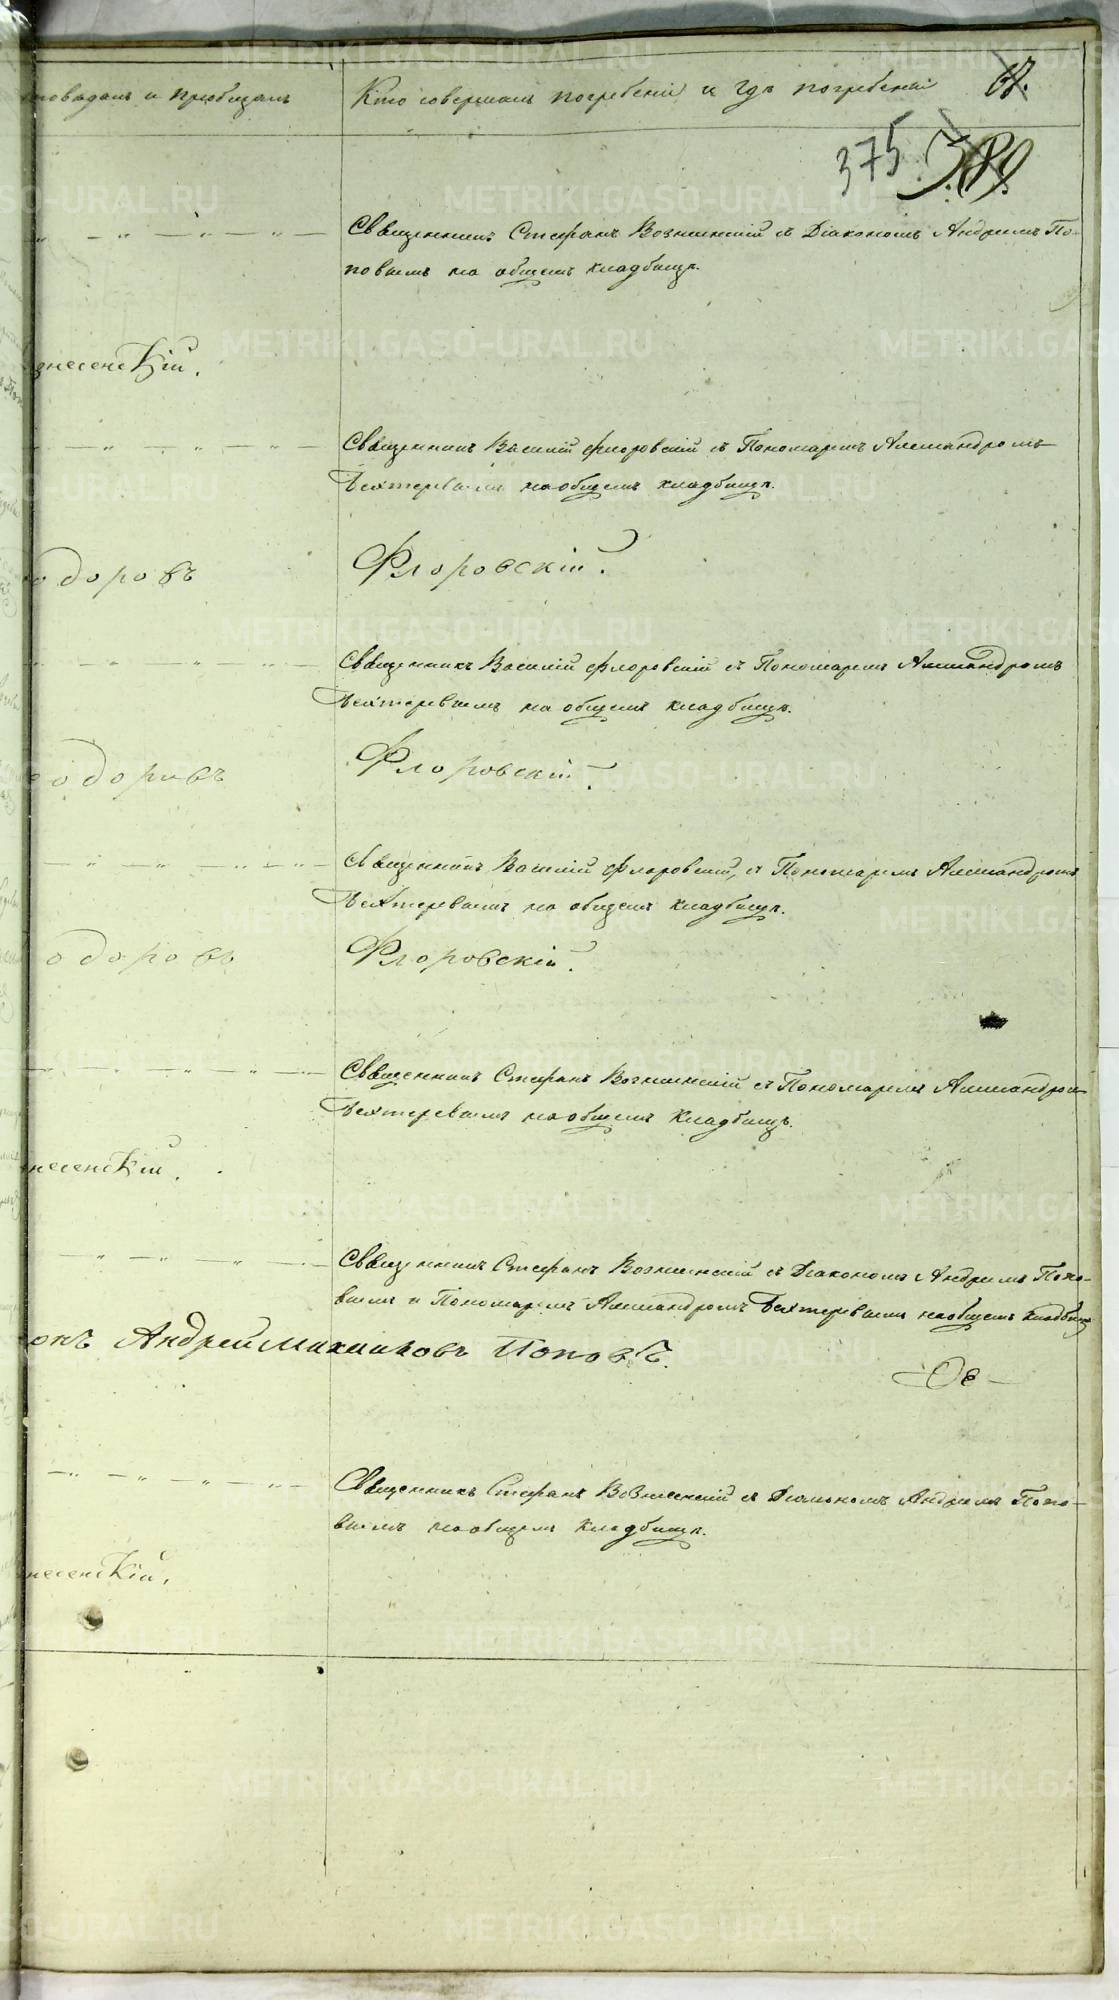 исповѣдалъ и пріобщалъ
Кто совершалъ погребеніе и гдѣ погребены
67.
375
389
Священникъ Стефанъ Вознесенскій съ Діакономъ Андреемъ По-
повымъ на общемъ кладбищѣ.
знесенскій.
Священникъ Василій Флоровскій съ Пономаремъ Александромъ
Дехтеревымъ на общемъ кладбищѣ.
одоровъ
Флоровскій.
Священникъ Василій Флоровскій съ Пономаремъ Александромъ
Дехтеревымъ на общемъ кладбищѣ.
еодоровъ
Флоровскій.
Священникъ Василій Флоровскій, съ Пономаремъ Александромъ
Дехтеревымъ на общемъ кладбищѣ.
одоровъ
Флоровскій.
Священникъ Стефанъ Вознесенскій съ Пономаремъ Александром
Дехтеревымъ на общемъ кладбищѣ.
несенскій.
Священникъ Стефанъ Вознесенскій съ Діакономъ Андреемъ Попо-
вымъ и Пономаремъ Александромъ Дехтеревымъ на общемъ кладбищѣ
онъ Андрей Михайловъ Поповъ.
Священникъ Стефанъ Вознесенскій съ Діакономъ Андреемъ Попо-
вымъ на общемъ кладбищѣ.
несенскій.
METRIKI.GASO-URAL.RU